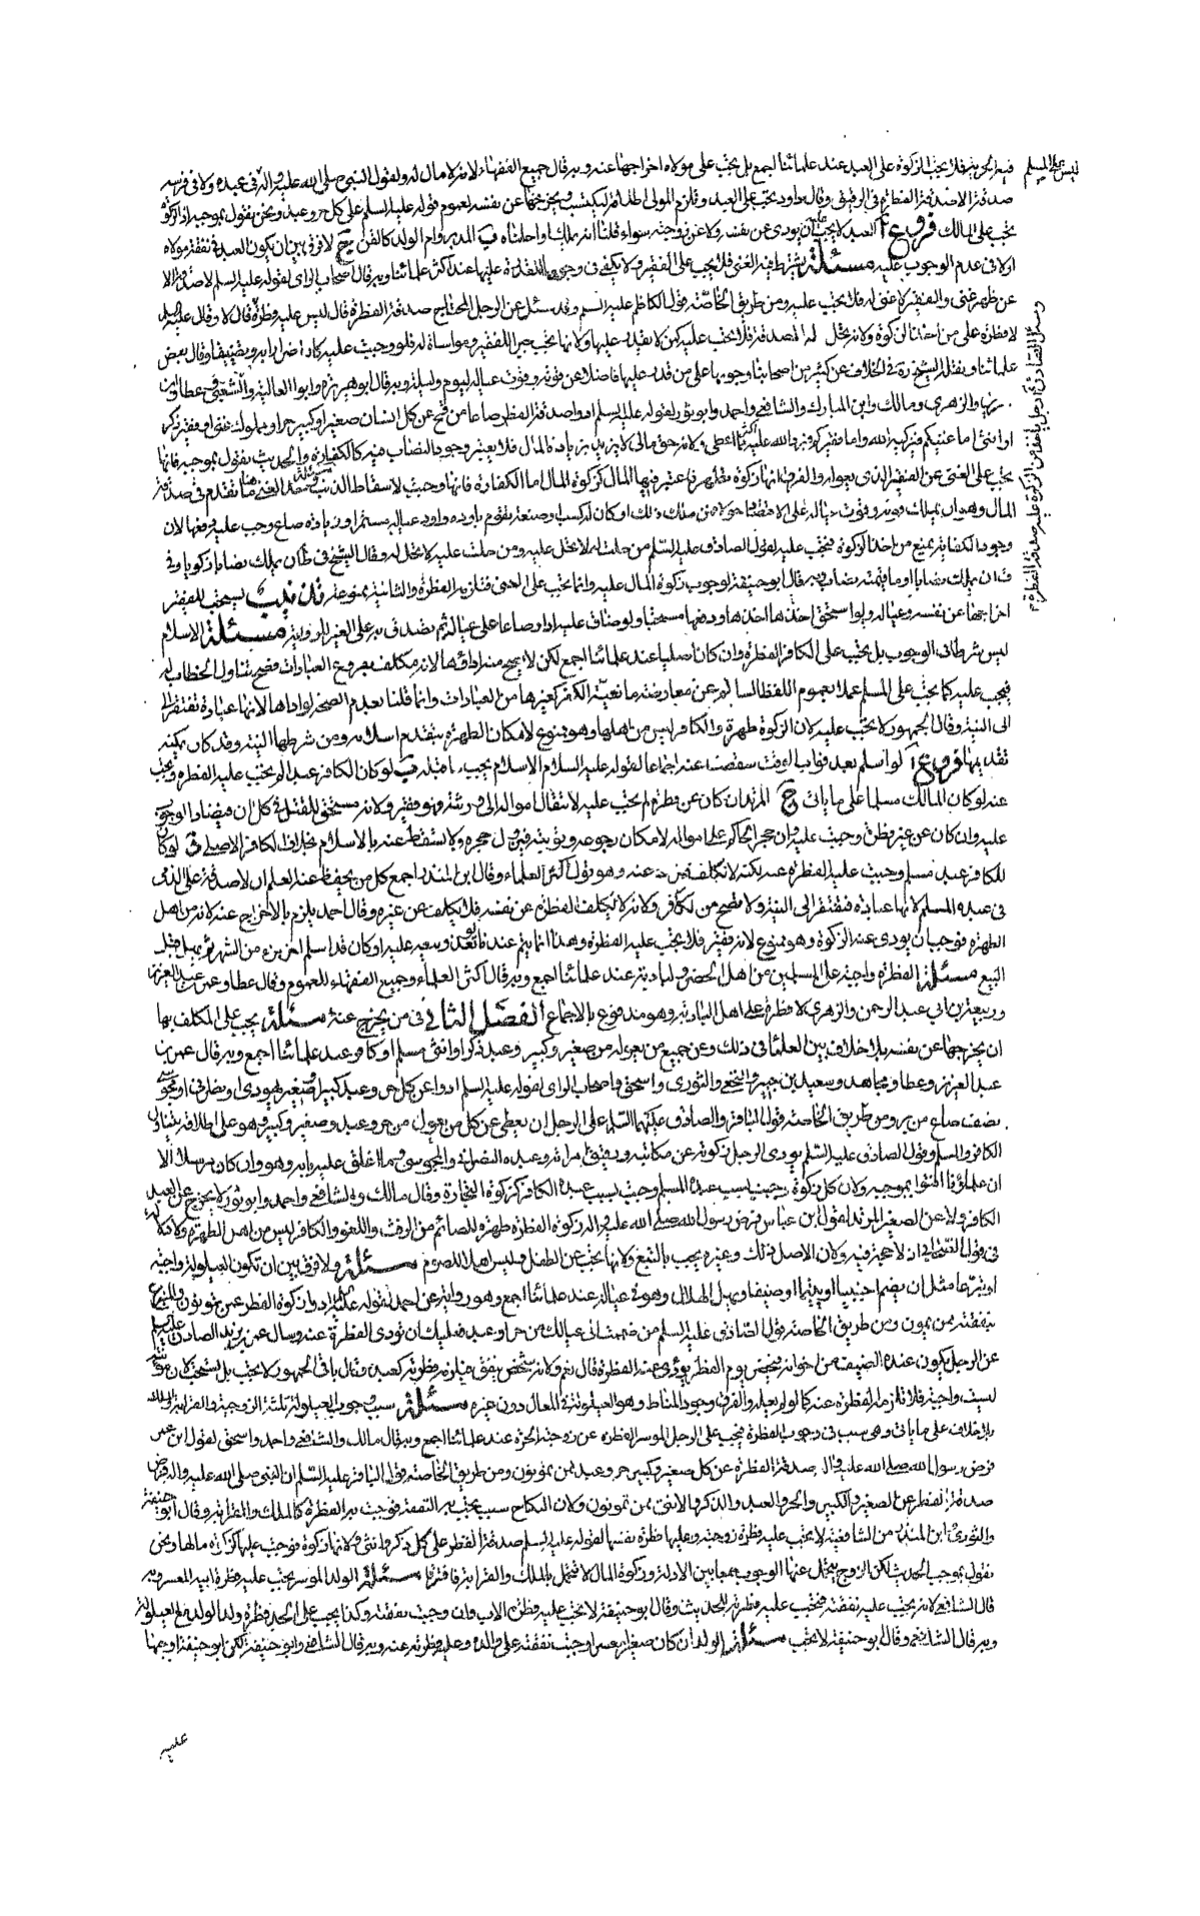 ليس على المسلم
فيه الحرية فلا يجب الزكوة على العبد عند علمائنا اجمع بل يجب على مولاه اخراجها عنه وبه قال جميع الفقهاء لانه لا مال له ولقول النبي صلى الله عليه واله في عبده ولا في فرسه
صدقة الا صدقة الفطر في الرقيق وقال داود يجب على العبد ويلزم المولى اطلاقه ليكتسب ويخرجها عن نفسه لعموم قوله عليه السلم على كل حر وعبد ونحن نقول بموجبه اذ الزكوة
يجب على المالك فروع ا العبد لا يجب ان يؤدى عن نفسه ولا عن زوجته سواء قلنا انه يملك او احلناه ب المدبر وام الولد كالقن ج لا فرق بين ان يكون العبد في نفقة مولاه
او لا في عدم الوجوب عليه مسئلة يشترط فيه الغنى فلا يجب على الفقير ولا يكفى في وجوبها القدرة عليها عند اكثر علمائنا وبه قال اصحاب الراى لقوله عليه السلم لا صدقة الا
عن ظهر غنى والفقير لا غنى له فلا يجب عليه ومن طريق الخاصة قول الكاظم عليه السلم وقد سئل عن الرجل المحتاج صدقة الفطرة قال ليس عليه فطرة قال لا وقال عليه السلم
لا فطرة على من اخذ الزكوة ولانه يحل له الصدقة فلا يجب عليه كمن لا يقدر عليها ولانها يجب جبرا للفقير ومواساة له فلو وجبت عليه كان اضرارا به وتضييقا وقال بعض
علمائنا ونقله الشيخ ره في الخلاف عن كثير من اصحابنا وجوبها على من قدر عليها فاضلا عن قوته وقوت عياله ليوم وليلة وبه قال ابو هريرة وابو العالية والشعبي وعطا وابن
سيرين والزهري ومالك وابن المبارك والشافعي واحمد وابو ثور لقوله عليه السلم ادوا صدقة الفطر صاعا من قمح عن كل انسان صغير او كبير حر او مملوك غنى او فقير ذكر
او انثى اما غنيكم فيزكيه الله واما فقيركم فيرد الله عليه اكثر مما اعطى ولانه حق مالى لا يزيد بزيادة المال فلا يعتبر وجود النصاب فيه كالكفارة والحديث نقول بموجبه فانها
يجب على الغنى عن الفقير الذى يعوله والفرق انها زكوة مطهرة فاعتبر فيها المال كزكوة المال اما الكفارة فانها وجبت لاسقاط الذنب وحد الغنى هنا ما تقدم في صدقة
المال وهو ان يملك قوته وقوت عياله على الاقتصاد حولا فمن ملك ذلك او كان له كسب او صنعة يقوم باوده واود عياله مستمرا وزيادة صاع وجب عليه دفعها لان
وجود الكفاية يمنع من اخذ الزكوة فيجب عليه لقول الصادق عليه السلم من حلت له لا تحل عليه ومن حلت عليه لا تحل له وقال الشيخ في ان يملك نصابا زكويا وفي
ان يملك نصابا او ما قيمته نصاب وبه قال ابو حنيفة لوجوب زكوة المال عليه وانما يجب على الغنى فتلزمه الفطرة والثانية ممنوعة تذنيب يستحب للفقير
اخراجها عن نفسه وعياله ولو استحق اخذها اخذها ودفعها مستحبا ولو ضاق عليه ادار صاعا على عياله ثم تصدق به على الغير للرواية مسئلة الاسلام
ليس شرطا في الوجوب بل يجب على الكافر الفطرة وان كان اصليا عند علمائنا اجمع لكن لا يصح منه اداؤها لانه مكلف بفروع العبادات فصح تناول الخطاب له
فيجب عليه كما يجب على المسلم عملا بعموم اللفظ السالم عن معارضة مانعية الكفر كغيرها من العبادات وانما قلنا بعدم الصحة لو اداها لانها عبادة تفتقر
الى النية وقال الجمهور لا يجب عليه لان الزكوة طهرة والكافر ليس من اهلها وهو ممنوع لامكان الطهرة بتقدم اسلامه ومن شرطها النية وقد كان يمكنه
تقديمها فروع ا لو اسلم بعد فوات الوقت سقطت عنه اجماعا لقوله عليه السلام الاسلام يجب ما قبله ب لو كان الكافر عبدا لم يجب عليه الفطرة ويجب
عنه لو كان المالك مسلما على ما ياتي ج المرتد ان كان عن فطرة لم يجب عليه لانتقال امواله الى ورثته فهو فقير ولانه مستحق للقتل في كل ان فيضاد الوجوب
عليه وان كان عن غير فطرة وجبت عليه وان حجر الحاكم على امواله لامكان رجوعه وتوبته فيزول حجره ولا تسقط عنه بالاسلام بخلاف الكافر الاصلي د لو كان
للكافر عبد مسلم وجبت عليه الفطرة عنه لكنه لا يكلف عنه وهو قول اكثر العلماء وقال ابن المنذر اجمع كل من يحفظ عنه العلم ان لا صدقة على الذمى
في عبده المسلم لانها عبادة فتفتقر الى النية ولا تصح من الكافر ولانه لا يكلف الفطرة عن نفسه فلا يكلف عن غيره وقال احمد يلزم بالاخراج عنه لانه من اهل
الطهرة فوجب ان يؤدى عنه الزكوة وهو ممنوع لانه فقير فلا يجب عليه الفطرة وهذا انما يتم عند بيعه عليه او كان قد اسلم اخر يوم من الشهر ثم يهل قبل
البيع مسئلة الفطرة واجبة على المسلمين من اهل الحضر والبادية عند علمائنا اجمع وبه قال اكثر العلماء وجميع الفقهاء للعموم وقال عطا وعمر بن عبد العزيز
وربيعة بن ابي عبد الرحمن والزهرى لا فطرة على اهل البادية وهو مدفوع بالاجماع الفصل الثاني في من يخرج عنه مسئلة يجب على المكلف بها
ان يخرجها عن نفسه بلا خلاف بين العلماء في ذلك وعن جميع من يعوله من صغير وكبير وعبد ذكر او انثى مسلم او كافر عند علمائنا اجمع وبه قال عمر بن
عبد العزيز وعطا ومجاهد وسعيد بن جبير والنخعي والثورى واسحق واصحاب الراى لقوله عليه السلم ادوا عن كل حر وعبد كبير او صغير يهودى او نصرانى او مجوسى
نصف صاع من بر ومن طريق الخاصة قول الباقر والصادق عليهما السلم على الرجل ان يعطى عن كل من يعول من حر وعبد وصغير وكبير وهو على اطلاقه يتناول
الكافر والمسلم وقول الصادق عليه السلم يؤدى الرجل زكوته عن مكاتبه ورقيق امراته وعبده النصراني والمجوسي وما اغلق عليه بابه وهو وان كان مرسلا الا
ان علماؤنا افتوا بموجبه ولان كل زكوة وجبت بسبب عبده المسلم وجبت بسبب عبده الكافر كزكوة التجارة وقال مالك والشافعي واحمد وابو ثور لا يخرج عن العبد
الكافر ولا عن الصغير المرتد لقول ابن عباس فرض رسول الله صلى الله عليه واله زكوة الفطرة طهرة للصائم من الرفث واللغو والكافر ليس من اهل الطهرة ولا دلالة
في قول الصحابي اذ لا حجة فيه ولان الاصل ذلك وغيره يجب بالتبع ولانها يجب عن الطفل وليس اهلا للصوم مسئلة ولا فرق بين ان تكون العيلولة واجبة
او تبرعا مثل ان يضم اجنبيا او يتيما او ضيفا ويهل الهلال وهو في عياله عند علمائنا اجمع وهو رواية عن احمد لقوله عليه السلم ادوا زكوة الفطر عمن تمونون
بنفقته ممن يمون ومن طريق الخاصة قول الصادق عليه السلم من ضممت الى عيالك من حر او عبد فعليك ان تؤدى الفطرة عنه وسال عمر بن يزيد الصادق عليه السلم
عن الرجل يكون عنده الضيف من اخوانه فيحضر يوم الفطر يؤدى عنه الفطرة قال نعم ولانه شخص ينفق عليه فلزمته فطرته كعبده وقال باقى الجمهور لا يجب بل يستحب لان مؤنته
ليست واجبة فلا تلزمه الفطرة عنه كما لو لم يعله والفرق وجود المناط وهو العيلولة في المعال دون غيره مسئلة سبب وجوب العيلولة ثلثة الزوجية والقرابة والملك
بلا خلاف على ما ياتى وهى سبب في وجوب الفطرة فيجب على الرجل الموسر الفطرة عن زوجته الحرة عند علمائنا اجمع وبه قال مالك والشافعي واحمد واسحق لقول ابن عمر
فرض رسول الله صلى الله عليه واله صدقة الفطرة عن كل صغير وكبير حر وعبد ممن تمونون ومن طريق الخاصة قول الباقر عليه السلم ان النبي صلى الله عليه واله فرض
صدقة الفطر عن الصغير والكبير والحر والعبد والذكر والانثى ممن تمونون ولان النكاح سبب يجب به النفقة فوجبت به الفطرة كالملك والقرابة وقال ابو حنيفة
والثوري وابن المنذر من الشافعية لا يجب عليه فطرة زوجته وعليها فطرة نفسها لقوله عليه السلم صدقة الفطر على كل ذكر وانثى ولانها زكوة فوجبت عليها كزكوة مالها ونحن
نقول بموجب الحديث لكن الزوج يتحمل عنها الوجوب جمعا بين الادلة وزكوة المال لا تتحمل بالملك والقرابة فافترقا مسئلة الولد الموسر يجب عليه فطرة ابيه المعسر وبه
قال الشافعي لانه يجب عليه نفقته فيجب عليه فطرته للحديث وقال ابو حنيفة لا يجب عليه فطرة الاب وان وجبت نفقته وكذا يجب على الجد فطرة ولد الولد مع العيلولة
وبه قال الشافعي وقال ابو حنيفة لا يجب مسئلة الولد ان كان صغيرا معسرا وجبت نفقته على والده وعليه فطرته عنه وبه قال الشافعي وابو حنيفة لكن ابو حنيفة اوجبها
عليه
وسئل الصادق عن رجل ياخذ من الزكوة عليه صدقة الفطرة